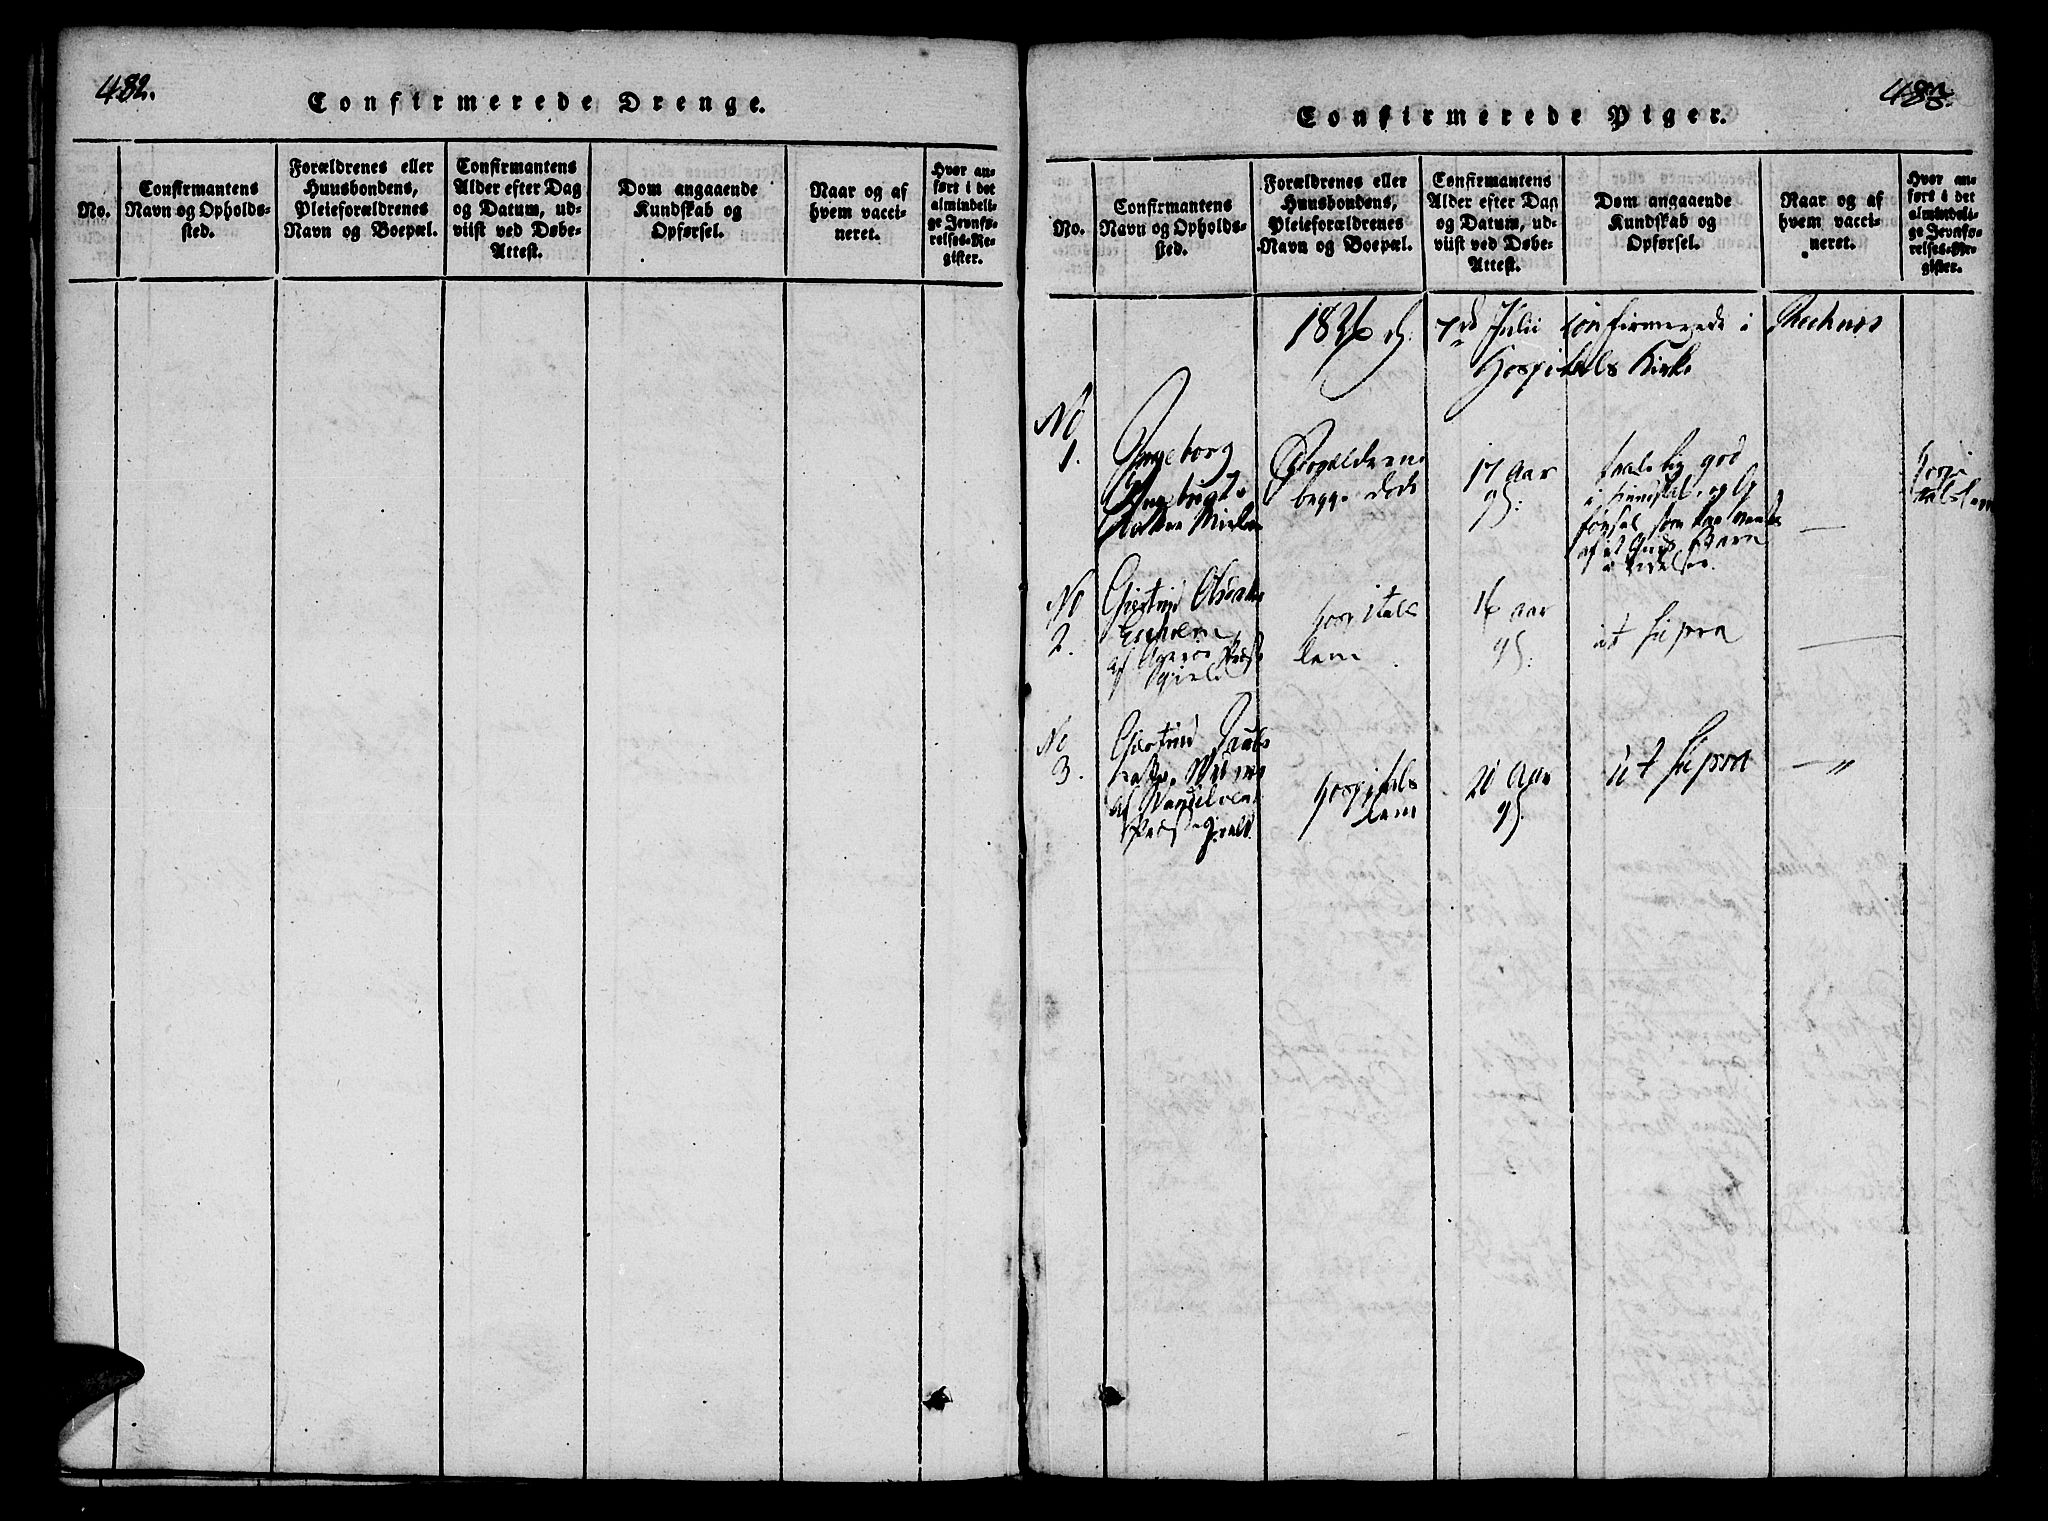 482.
Confirmerede Drenge.
No.
Confirmantens
Navn og Opholds-
sted.
Forældrenes eller
Huusbondens,
Pleieforældrenes
Navn og Boepæl.
Confirmantens
Alder efter Dag
og Datum, ud-
viist ved Døbe-
Attest.
Dom angaaende
Kundskab og
Opførsel.
Naar og af
hvem vacci-
neret.
Hvor an-
ført i det
almindeli-
ge Jevnfø-
relses-Re-
gister.
483.
Confirmerede Piger.
No.
Confirmantens
Navn og Opholds-
sted.
Forældrenes eller
Huusbondens,
Pleieforældrenes
Navn og Boepæl.
Confirmantens
Alder efter Dag
og Datum, ud-
viist ved Døbe-
Attest.
Dom angaaende
Kundskab og
Opførsel.
Naar og af
hvem vacci-
neret.
Hvor an-
ført i det
almindeli-
ge Jevnfø-
relses-Re-
gister.
1826 d. 7de Julii confirmerede i Recknes
Hospitals Kirke
No
1.
Ingeborg
Ingebrigts
Forældrene
begge døde
17 Aar
gl:
god
i Kundskab og
som
af et Guds Barn
No
2.
Giertrud
af Agerøe Præste
gield
hospitals
lem
16 aar
gl:
ut supra
No
3.
Giertrud
af
Præstegield.
hospitals
lem
20 Aar
gl.
ut supra
— "